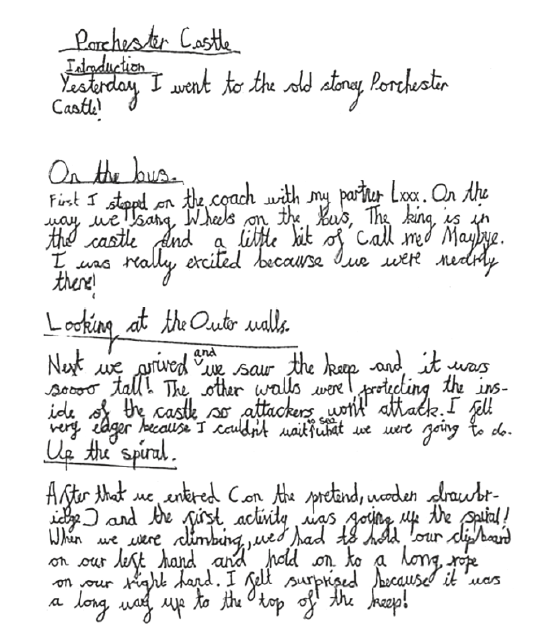 Porchester Castle
Introduction
Yesterday I went to the old stoney Porchester
Castle!
On the bus.
First I stepd on the coach with my partner Lxxx. On the
way we sang, Wheels on the bus, The king is in
the castle and a little bit of, Call me Maybye.
I was really excited because we were nearly
there!
Looking at the Outer walls.
Next we arrived and we saw the keep and it was
soooo tall! The other walls were protecting the ins-
ide of the castle so attackers won't attack. I felt
very edger because I couldn't wait to see what we were going to do.
Up the spiral.
After that we entered (on the pretend, wooden drawbr-
idge) and the first activity was going up the spiral!
When we were climbing, we had to hold our clipboard
on our left hand and hold on to a long rope
on our right hand. I felt surprised because it was
a long way up to the top of the keep!